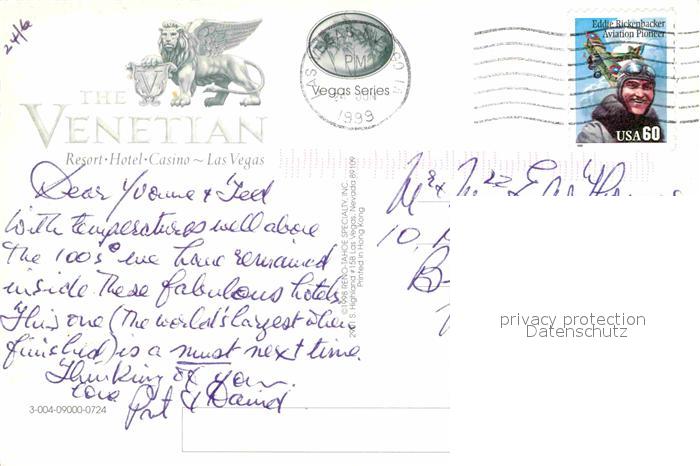 24/6
THE
VENETIAN
Resort·Hotel·Casino ~ Las Vegas
Vegas Series
LAS VEGAS
PM
JUN
1999
Eddie Rickenbacker
Aviation Pioneer
USA 60
Dear Yvonne & Ted
With temperatures well above
The 100s° we have remained
inside these fabulous hotels
This one (The world's largest when
finished) is a must next time.
Thinking of you.
Love Pat & David
3-004-09000-0724
©1998 RENO-TAHOE SPECIALTY, INC.
2901 S. Highland #15B Las Vegas, Nevada 89109
Printed in Hong Kong
Mr & Mrs E
10
privacy protection
Datenschutz